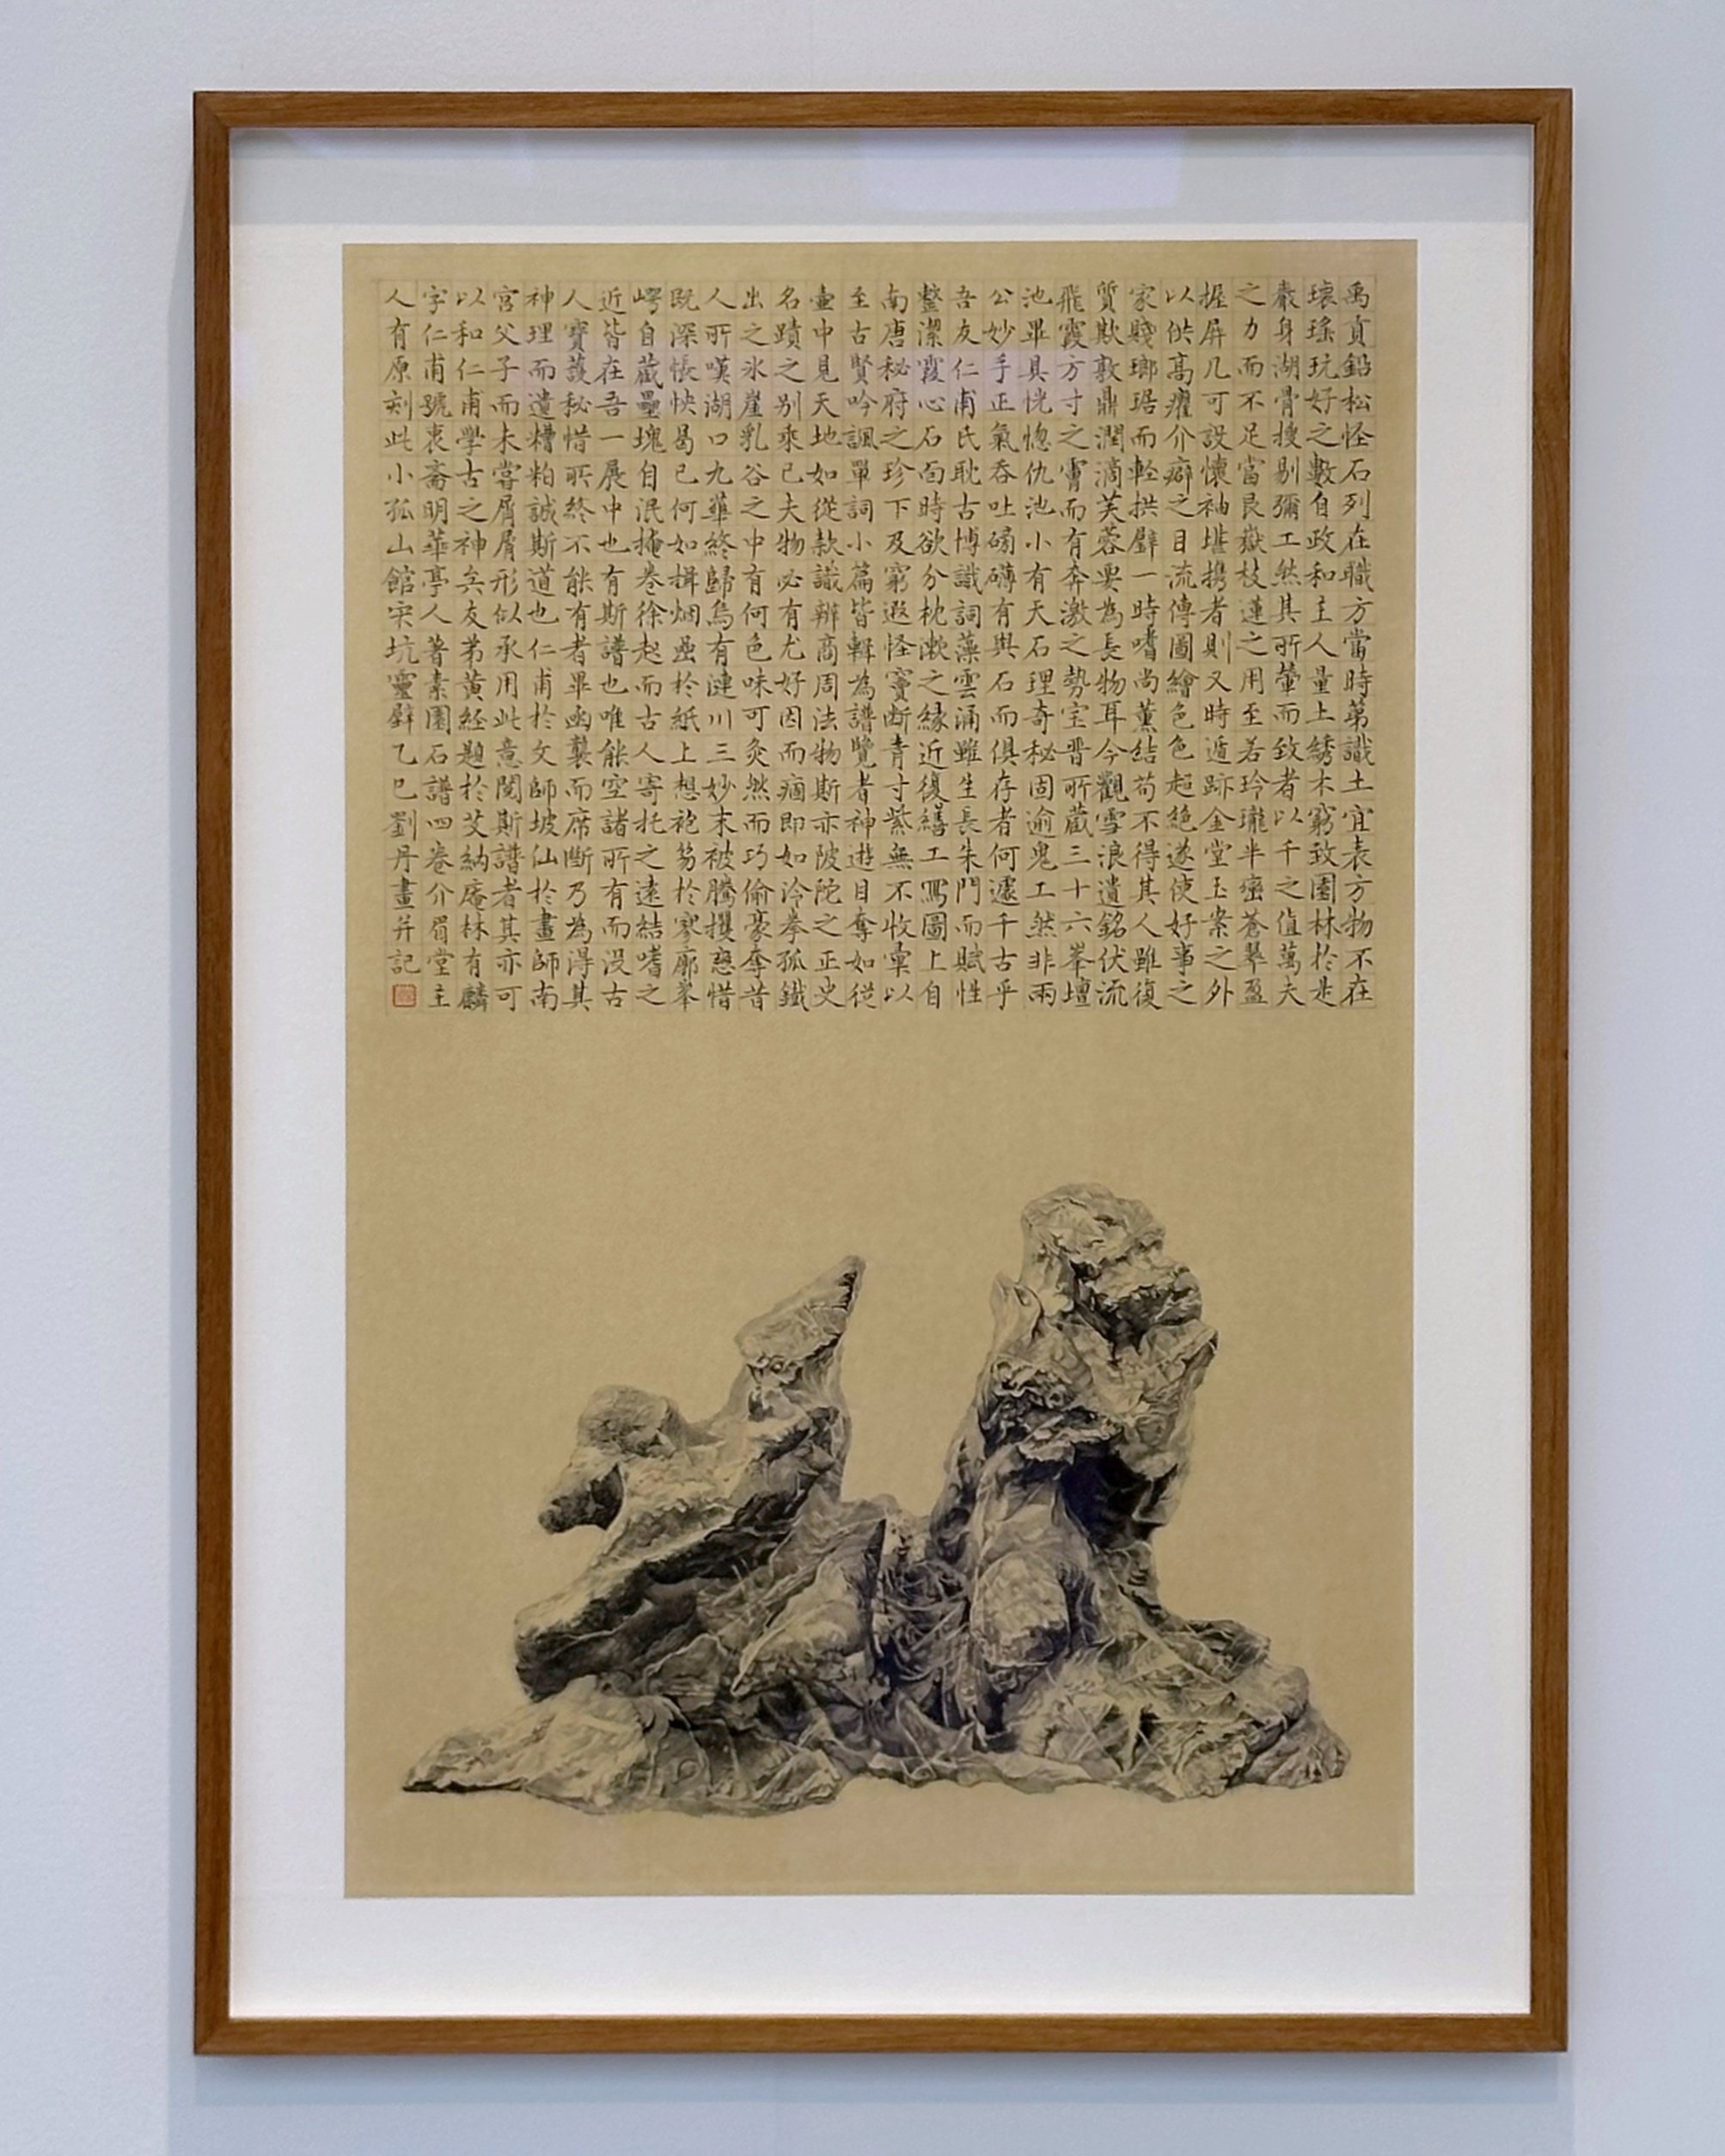 禹貢鉛松怪石列在職方當時第識土宜表方物不在
瓌瑤玩好之數自政和主人量上綉木窮致園林於是
嚴身湖骨搜剔彌工然其所輦而致者以千之值萬夫
之力而不足當艮嶽枝蓮之用至若玲瓏半巒蒼翠盈
握屏几可設懷袖堪攜者則又時遁跡金堂玉案之外
以供高癯介癖之目流傳圖繪色色超絕遂使好事之
家賤瑯琚而輕拱璧一時嗜尚薰結苟不得其人雖復
質欺敦鼎潤滴芙蓉要為長物耳今觀雪浪遺銘伏流
飛霞方寸之霤而有奔激之勢宝晋所藏三十六峯壇
池畢具恍惚仇池小有天石理奇秘固逾鬼工然非兩
公妙手正氣吞吐磅礴有與石而俱存者何遽千古乎
吾友仁甫氏耽古博識詞藻雲涌雖生長朱門而賦性
潔霞心石面時欲分枕漱之緣近復繕工寫圖上自
南唐秘府之珍下及窮遐怪竇断青寸紫無不收彙以
至古賢吟諷單詞小篇皆輯為譜覽者神遊目奪如從
壷中見天地如從款識辨商周法物斯亦陂陀之正史
名蹟之别乘已夫物必有尤好因而痼即如泠拳孤鐵
出之氷崖乳谷之中有何色味可灸然而巧偷豪奪昔
人所嘆湖口九華終歸烏有漣川三妙末被騰攫惜
既深悵怏曷已何如揖烟於紙上想袍笏於寥廓峯
崿自蔵壘塊自泯掩卷徐起而古人寄托之遠結嗜之
近皆在吾一展中也有斯譜也唯能空諸所有而没古
人寶護秘惜所終不能有者畢函襲而席斷乃為得其
神理而遺糟粕誠斯道也仁甫於文師坡仙於畫師南
宮父子而未嘗屑屑形似承用此意閱斯譜者其亦可
以和仁甫學古之神矣友弟黃経題於艾納庵林有麟
字仁甫號衷齋明華亭人著素園石譜四卷介眉堂主
人有原刻此小孤山館宋坑靈璧乙巳劉丹畫并記